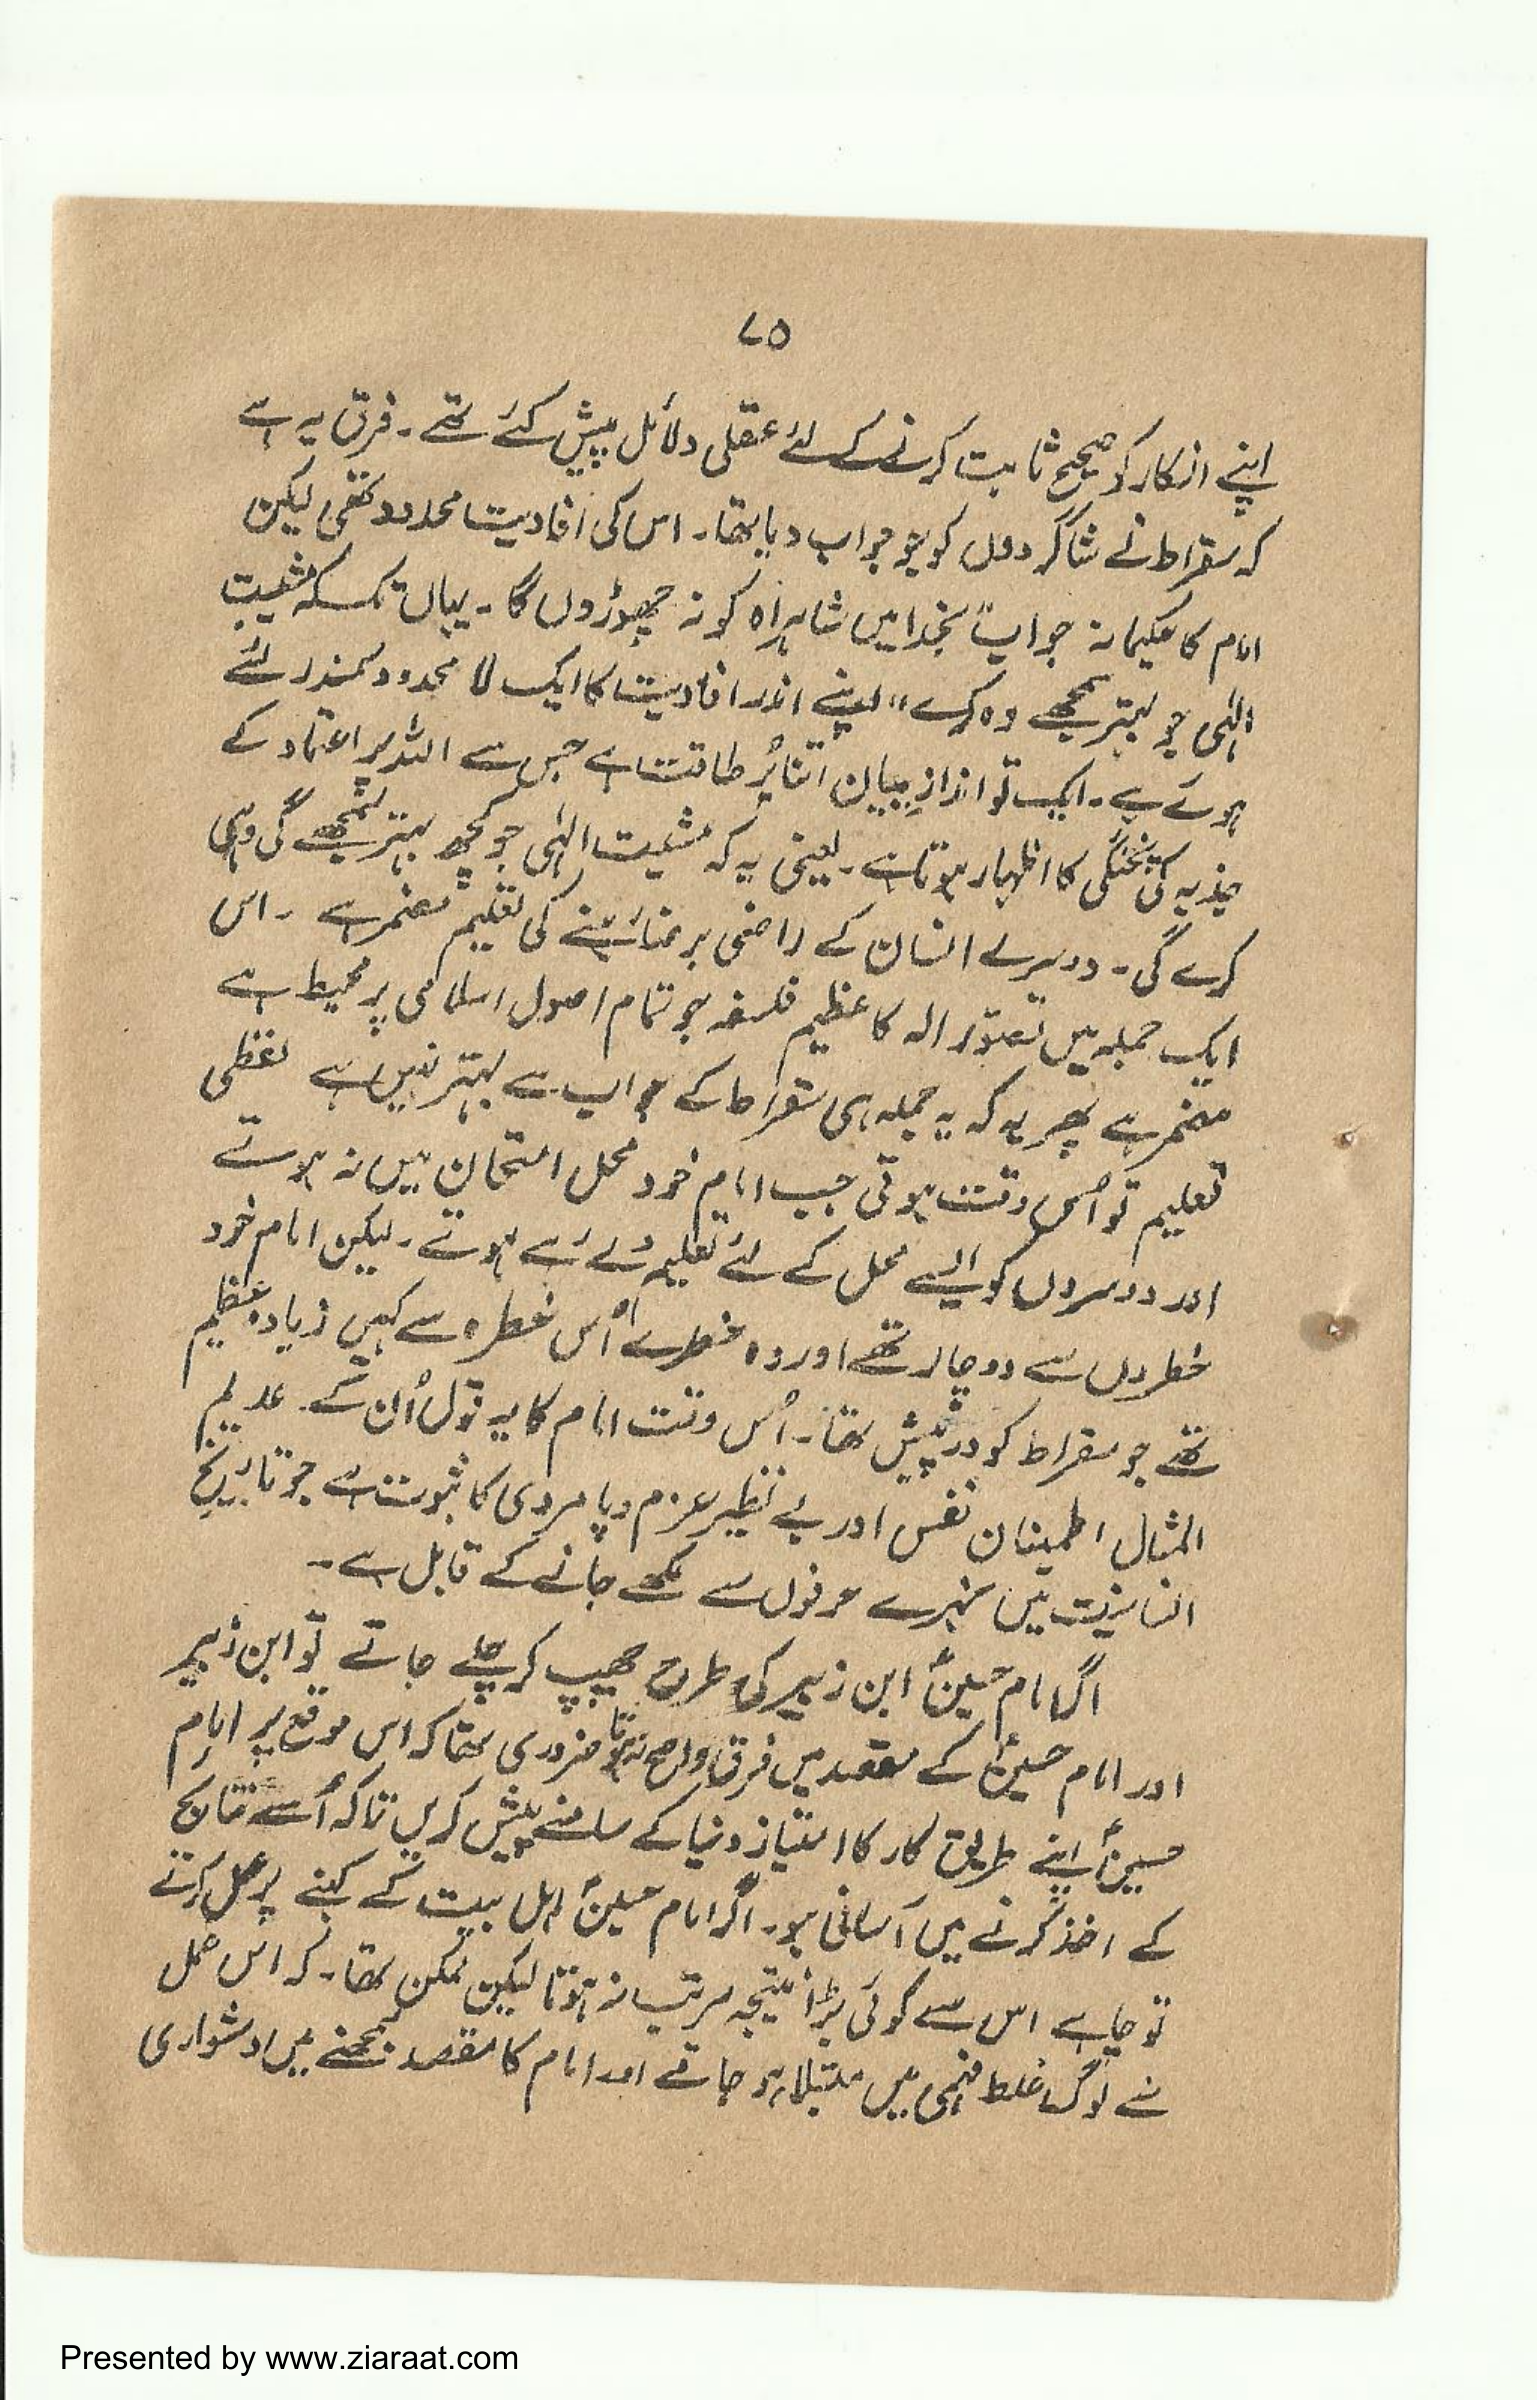 ۷۵
اپنے انکار کو صحیح ثابت کرنے کے لئے عقلی دلائل پیش کئے تھے۔ فرق یہ ہے
کہ سقراط نے شاگردوں کو جو جواب دیا تھا۔ اس کی افادیت محدود تھی لیکن
امام کا حکیمانہ جواب "بخدا میں شاہراہ کو نہ چھوڑوں گا۔ یہاں تک کہ مشیت
الٰہی جو بہتر سمجھے وہ کرے" اپنے اندر افادیت کا ایک لا محدود سمندر لئے
ہوئے ہے۔ ایک تو اندازِ بیان اتنا پُر طاقت ہے جس سے اللہ پر اعتماد کے
جذبہ کی پختگی کا اظہار ہوتا ہے۔ یعنی یہ کہ مشیت الٰہی جو کچھ بہتر سمجھے گی وہی
کرے گی۔ دوسرے انسان کے راضی برضا رہنے کی تعلیم مضمر ہے۔ اس
ایک جملہ میں تصوّر الہ کا عظیم فلسفہ جو تمام اصول اسلامی پر محیط ہے
مضمر ہے پھر یہ کہ یہ جملہ ہی سقراط کے جواب سے بہتر نہیں ہے لفظی
تعلیم تو اُس وقت ہوتی جب امام خود محل امتحان میں نہ ہوتے
اور دوسروں کو ایسے محل کے لئے تعلیم دے رہے ہوتے۔ لیکن امام خود
خطروں سے دوچار تھے اور وہ خطرے اُس خطرہ سے کہیں زیادہ عظیم
تھے جو سقراط کو درپیش تھا۔ اُس وقت امام کا یہ قول اُن کے عدیم
المثال اطمینان نفس اور بے نظیر عزم و پامردی کا ثبوت ہے جو تاریخ
انسانیت میں سنہرے حرفوں سے لکھے جانے کے قابل ہے۔
اگر امام حسینؑ ابن زبیر کی طرح چھپ کر چلے جاتے تو ابن زبیر
اور امام حسینؑ کے مقصد میں فرق واضح نہ ہوتا ضروری تھا کہ اس موقع پر امام
حسینؑ اپنے طریق کار کا امتیاز دنیا کے سامنے پیش کریں تاکہ اُسے نتائج
کے اخذ کرنے میں آسانی ہو۔ اگر امام حسینؑ اہل بیت کے کہنے پر عمل کرتے
تو چاہے اس سے کوئی بڑا نتیجہ مرتب نہ ہوتا لیکن ممکن تھا۔ کہ اس عمل
سے لوگ غلط فہمی میں مبتلا ہو جاتے اور امام کا مقصد سمجھنے میں دشواری
Presented by www.ziaraat.com